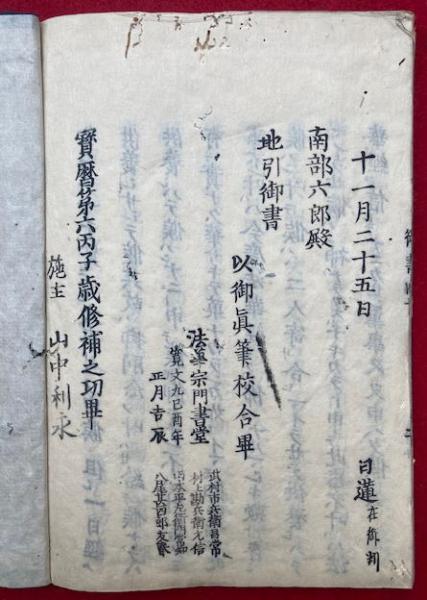 十一月二十五日
日蓮 在御判
南部六郎殿
地引御書
以御眞筆校合畢
法華宗門書堂
寛文九己酉年
正月吉辰
武村市兵衛昌常
村上勘兵衛元信
八尾甚四郎友春
寶曆第六丙子歳修補之功畢
施主 山中利永